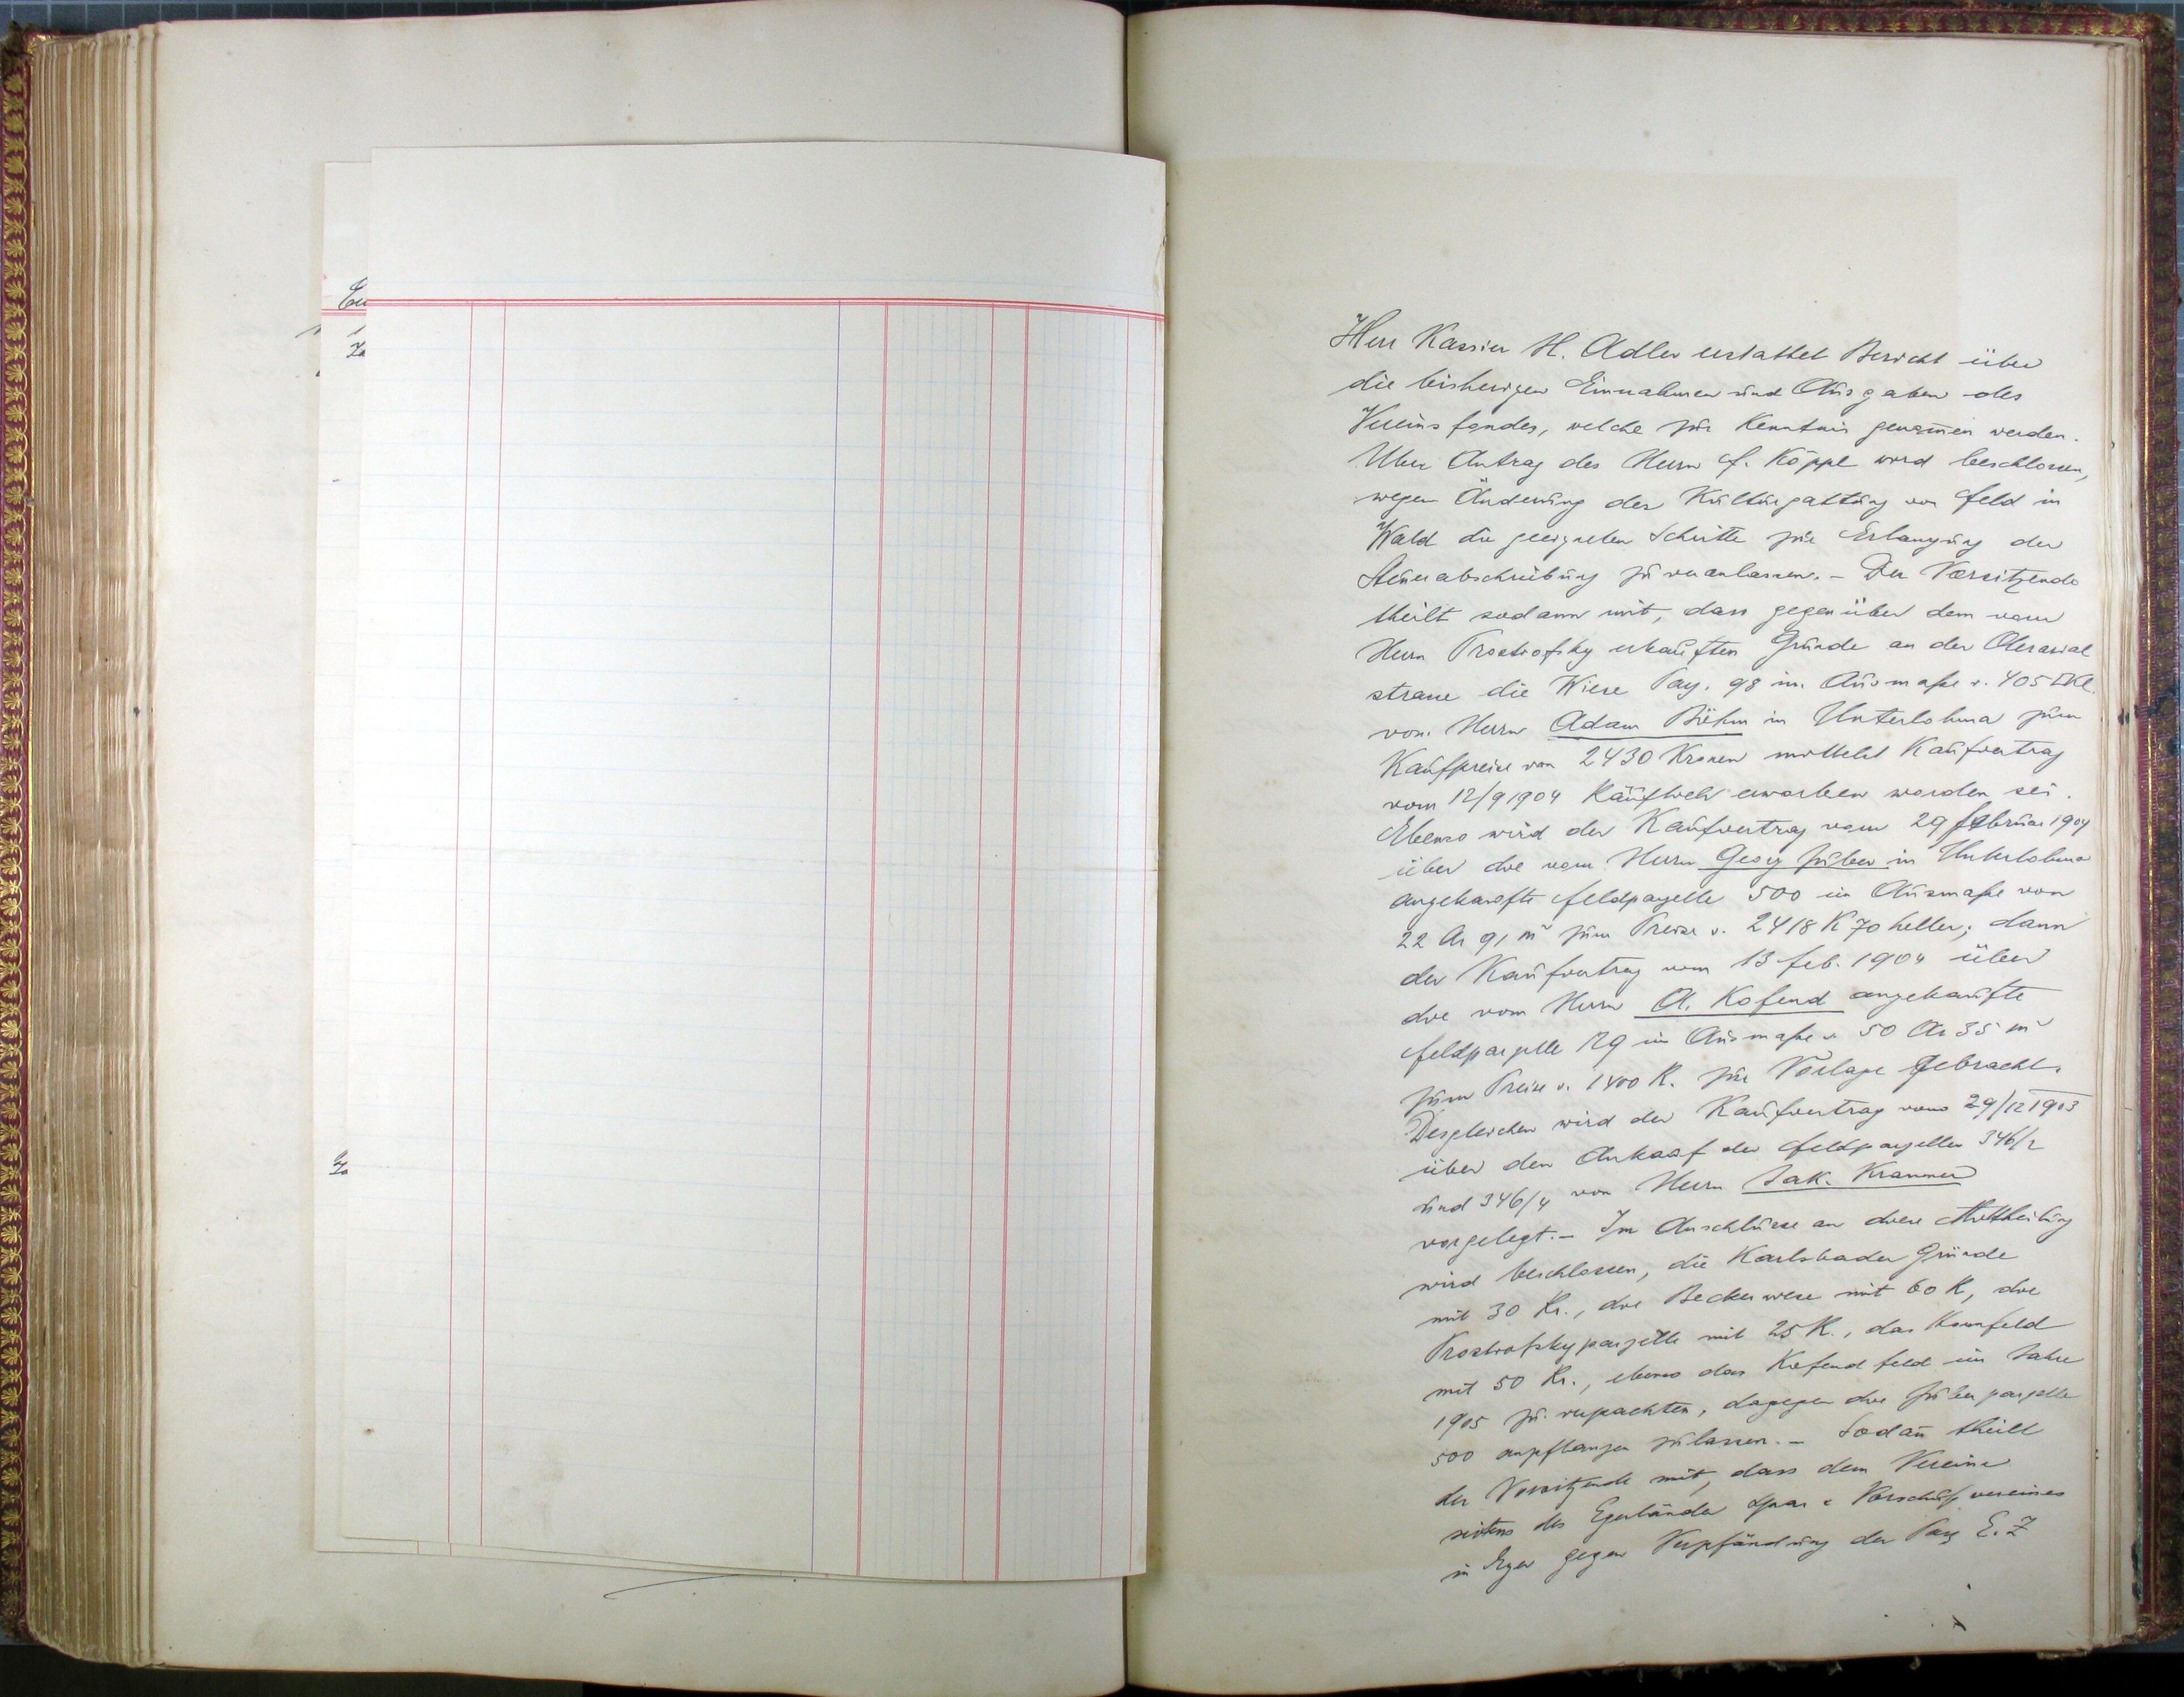 Herr Kassier H. Adler erstattet Bericht über
die bisherigen Einnahmen und Ausgaben des
Vereinsfondes, welche zur Kenntnis genom̄en werden.
Über Antrag des Herrn F. Köppl wird beschlossen,
wegen Änderung der Kulturgattung von Feld in
Wald die geeigneten Schritte zur Erlangung der
Steuerabschreibung zu veranlassen. – Der Vorsitzende
theilt sodann mit, dass gegenüber dem vom
Herrn Prostrofsky erkauften Grunde an der Ärarial
strasse die Wiese Parz. 98 im Ausmaße v. 405 □Kl.
von Herrn Adam Böhm in Unterlohma zum
Kaufpreise von 2430 Kronen mittelst Kaufvertrag
vom 12/9 1904 käuflich erworben worden sei.
Ebenso wird der Kaufvertrag vom 29 Februar 1904
über die vom Herrn Georg Huber in Unterlohma
angekaufte Feldparzelle 500 im Ausmaße von
22 Ar 91 m² zum Preise v. 2418 K 70 heller; dann
der Kaufvertrag vom 13 Feb. 1904 über
die vom Herrn A. Kofend angekaufte
Feldparzelle 129 im Ausmaße v. 50 Ar 35 m²
zum Preise v. 1400 K. zur Vorlage gebracht.
Desgleichen wird der Kaufvertrag vom 29/12 1903
über den Ankauf der Feldparzellen 346/2
und 346/4 von Herrn Jak. Krammer
vorgelegt. – Im Anschlusse an diese Mittheilung
wird beschlossen, die Karlsbader Gründe
mit 30 Kr., die Beckerwiese mit 60 K, die
Prostrofskyparzelle mit 25 K., das Kornfeld
mit 50 Kr., ebenso das Kofendfeld im Jahre
1905 zu verpachten, dagegen die Huberparzelle
500 anpflanzen zu lassen. – Sodan̄ theilt
der Vorsitzende mit, dass dem Vereine
seitens des Egerländer Spar & Vorschuß vereines
in Eger gegen Verpfändung der Parz E. Z